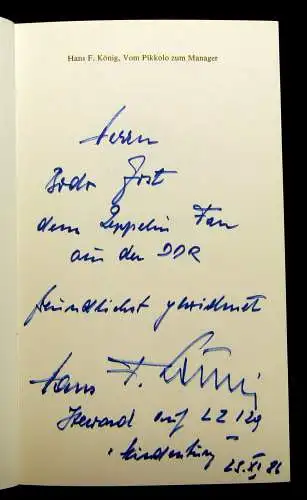 Hans F. König, Vom Pikkolo zum Manager
Herrn
Bodo Jost
dem Zeppelin Fan
aus der DDR
freundlichst gewidmet
Hans F. König
Steward auf LZ 129
"Hindenburg
23. XI 86